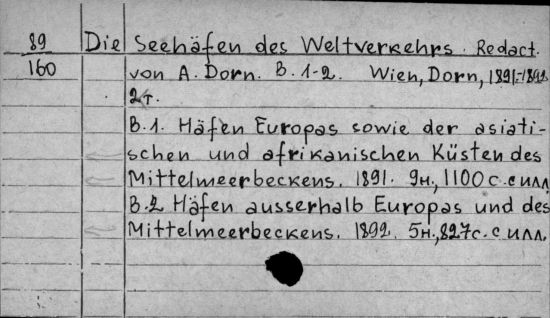 89 Die Seehäfen des Weltverkehrs. Redact.
160 von A. Dorn. B. 1-2. Wien, Dorn, 1891-1892
2т.
B.1. Häfen Europas sowie der asiati-
schen und afrikanischen Küsten des
Mittelmeerbeckens. 1891. 9н., 1100 с. с илл.
B.2 Häfen ausserhalb Europas und des
Mittelmeerbeckens. 1892. 5н., 827с. с илл.